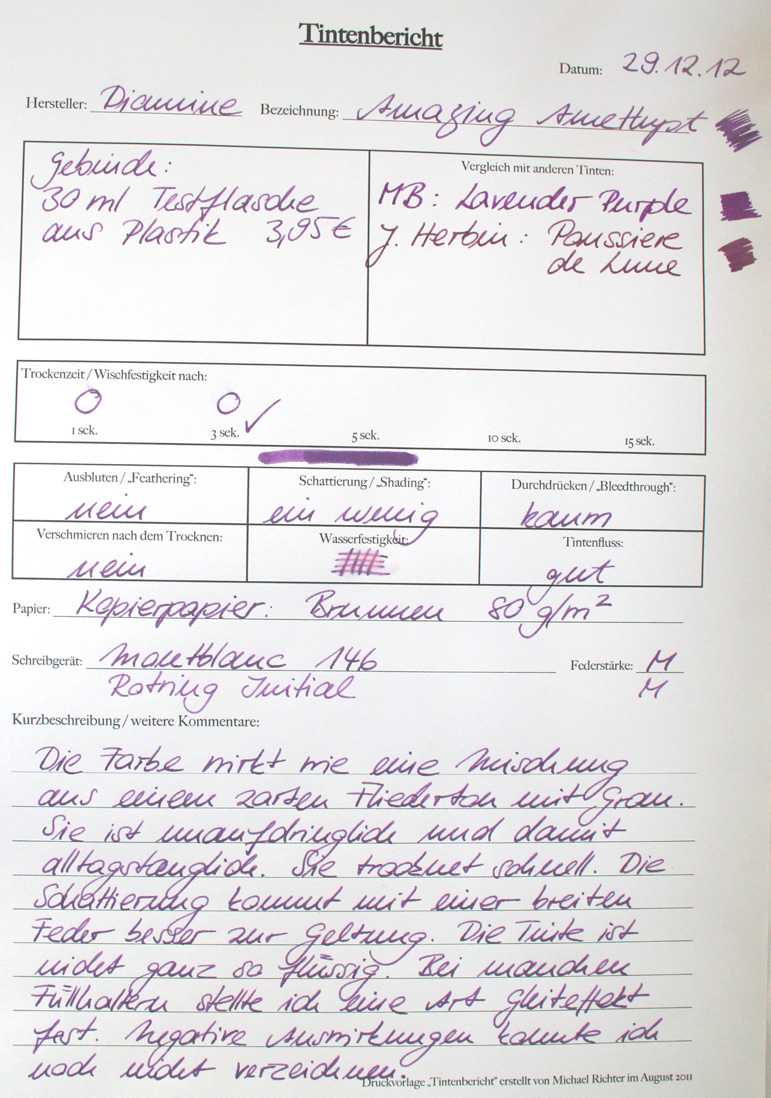 Tintenbericht
Datum: 29.12.12
Hersteller: Diamine Bezeichnung: Amazing Amethyst
Gebinde:
30 ml Testflasche
aus Plastik 3,95 €
Vergleich mit anderen Tinten:
MB: Lavender Purple
J. Herbin: Poussiere
de Lune
Trockenzeit / Wischfestigkeit nach:
1 sek. 3 sek. 5 sek. 10 sek. 15 sek.
Ausbluten / „Feathering“: Schattierung / „Shading“: Durchdrücken / „Bleedthrough“:
nein ein wenig kaum
Verschmieren nach dem Trocknen: Wasserfestigkeit: Tintenfluss:
nein gut
Papier: Kopierpapier: Brunnen 80 g/m²
Schreibgerät: Montblanc 146 Federstärke: M
Rotring Initial M
Kurzbeschreibung / weitere Kommentare:
Die Farbe wirkt wie eine Mischung
aus einem zarten Fliederton mit Grau.
Sie ist unaufdringlich und damit
alltagstauglich. Sie trocknet schnell. Die
Schattierung kommt mit einer breiten
Feder besser zur Geltung. Die Tinte ist
nicht ganz so flüssig. Bei manchen
Füllhaltern stellte ich eine Art Gleiteffekt
fest. Negative Auswirkungen konnte ich
noch nicht verzeichnen.
Druckvorlage „Tintenbericht“ erstellt von Michael Richter im August 2011